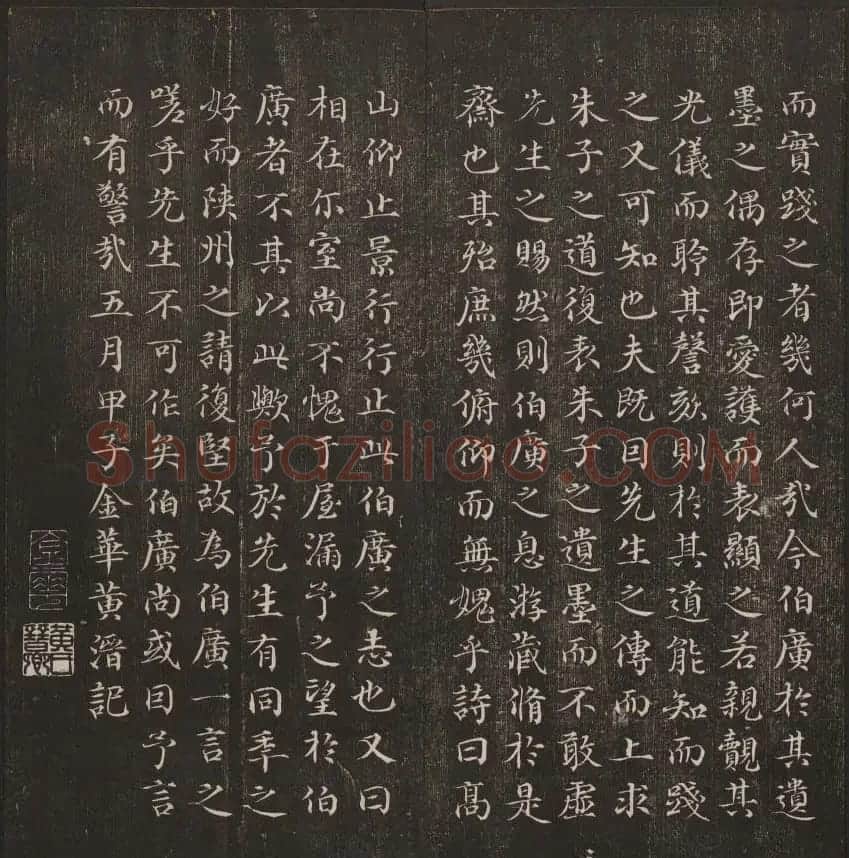 而實踐之者幾何人㦲今伯廣於其遺
墨之偶存即愛護而表顯之若親覿其
光儀而聆其謦欬則於其道能知而踐
之又可知也夫既因先生之傳而上求
朱子之道復表朱子之遺墨而不敢虛
先生之賜然則伯廣之息游藏脩於是
齋也其殆庶幾俯仰而無媿乎詩曰髙
山仰止景行行止此伯廣之志也又曰
相在尔室尚不愧于屋漏予之望於伯
廣者不其以此歟予於先生有同年之
好而陝州之請復堅故為伯廣一言之
嗟乎先生不可作矣伯廣尚或因予言
而有警㦲五月甲子金華黄溍記
黄氏晉卿
Shufaziliao.COM